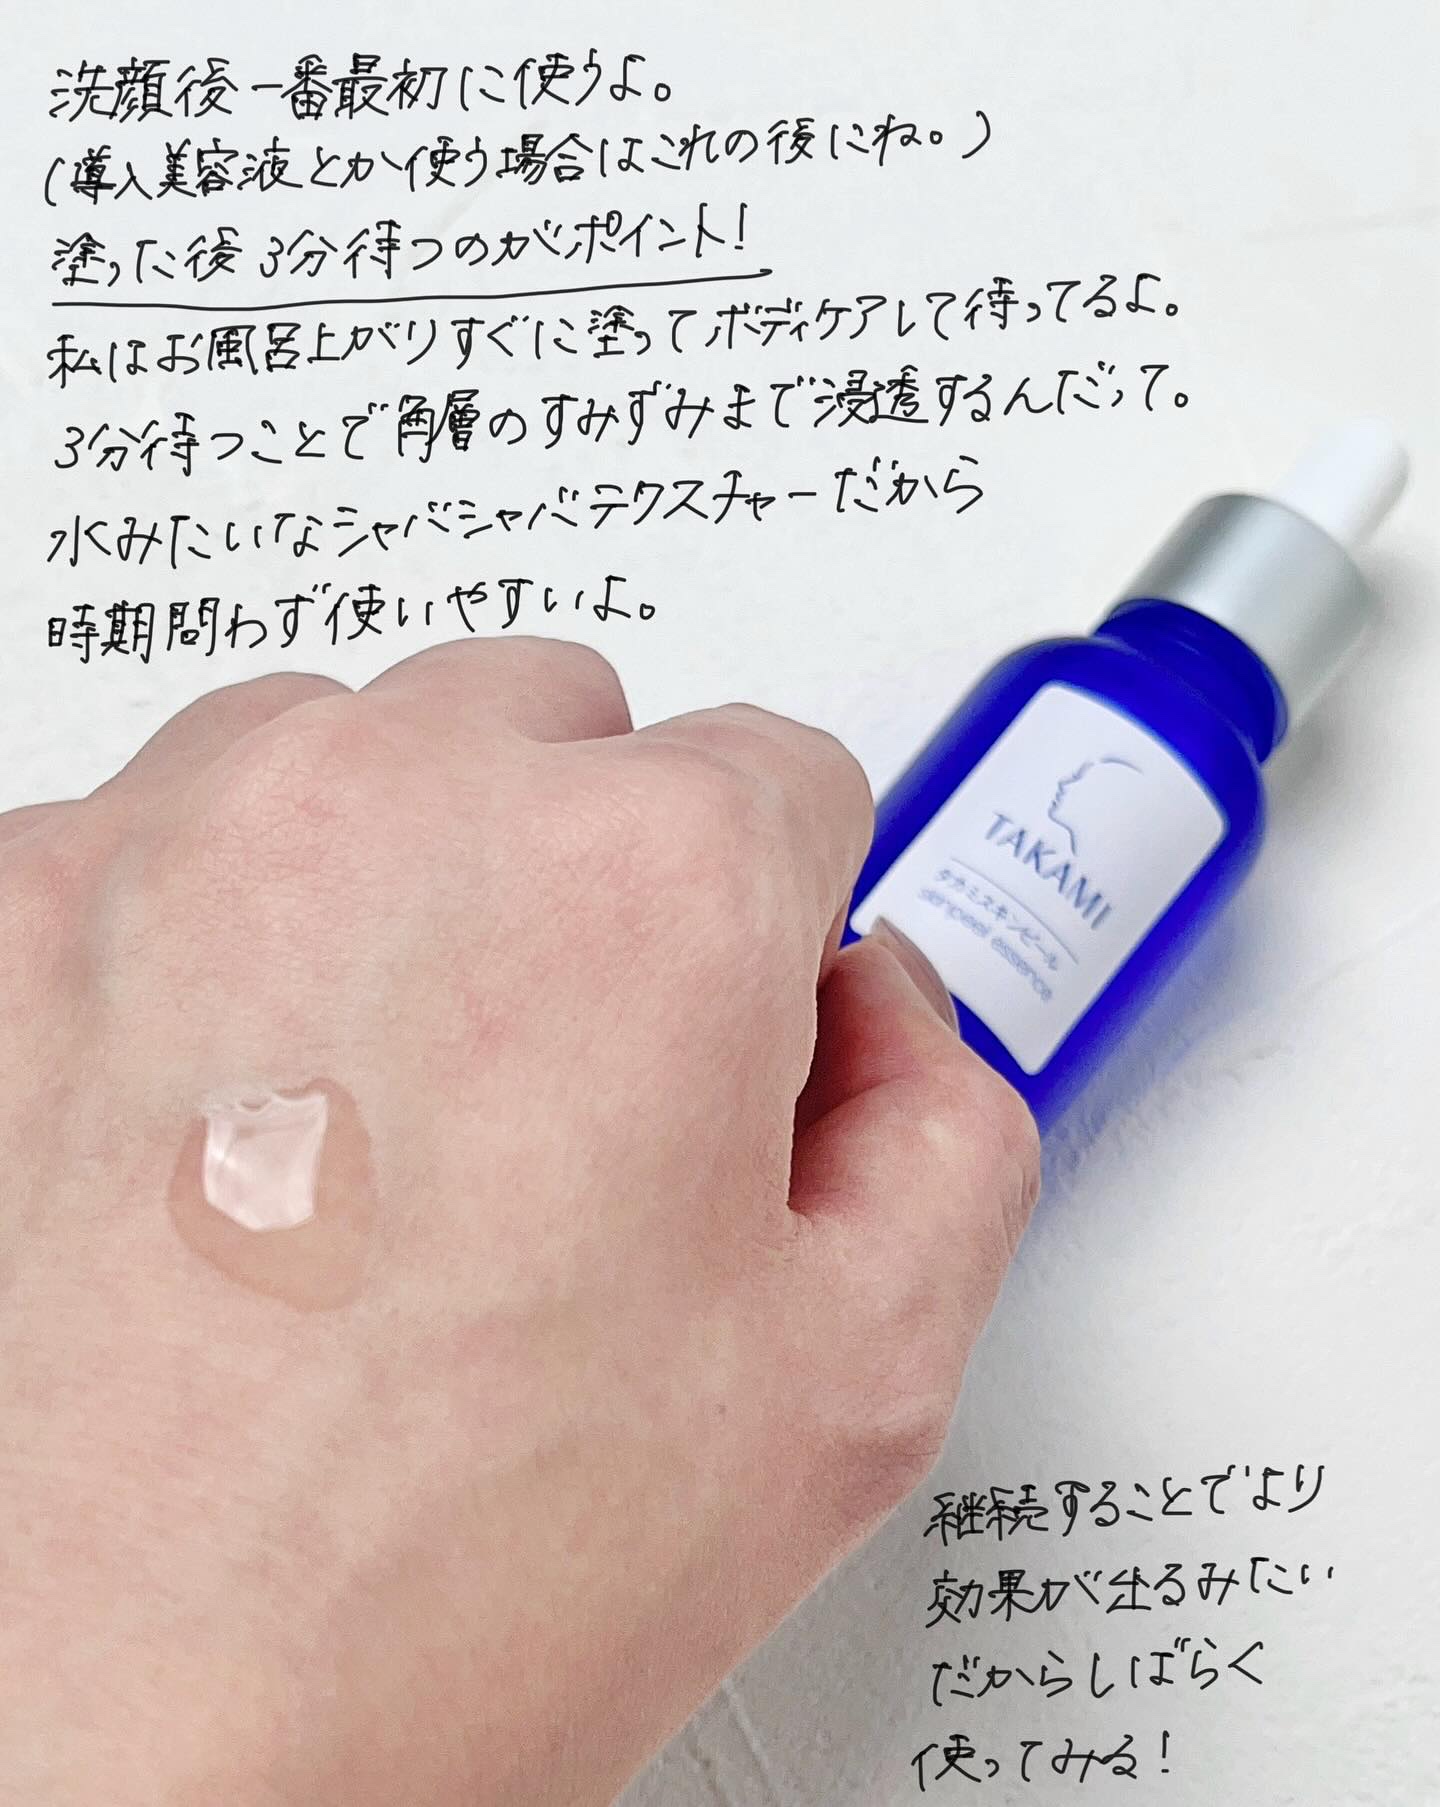 洗顔後一番最初に使うよ。
(導入美容液とか使う場合はこれの後にね。)
塗った後3分待つのがポイント!
私はお風呂上がりすぐに塗ってボディケアして待ってるよ。
3分待つことで角層のすみずみまで浸透するんだって。
水みたいなシャバシャバテクスチャーだから
時期問わず使いやすいよ。
TAKAMI
タカミスキンピール
skinpeel essence
継続することでより
効果が出るみたい
だからしばらく
使ってみる!